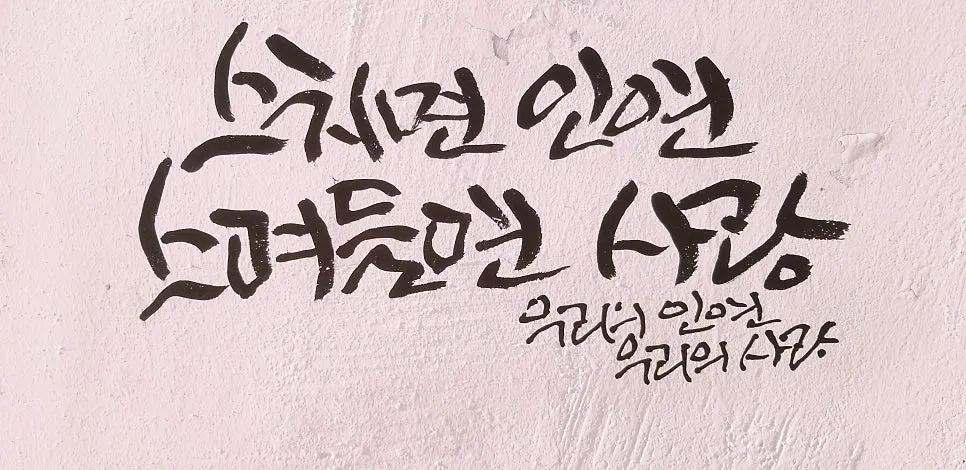 스치면 인연
스며들면 사랑
우리의 인연
우리의 사랑